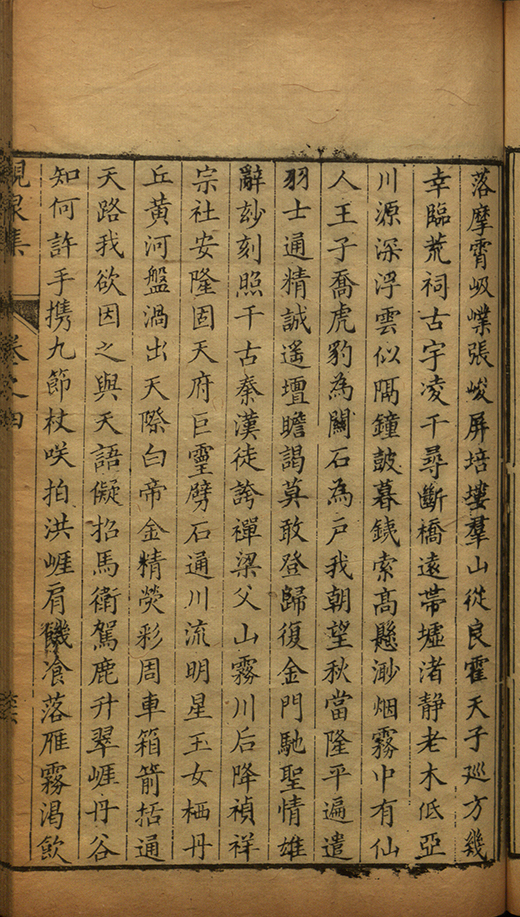 落摩霄岋嶫張峻屏培塿羣山從良霍天子廵方幾
幸臨荒祠古宇凌千尋斷橋遠帶墟渚静老木低亞
川源深浮雲似隔鐘皷暮銕索髙懸渺烟霧中有仙
人王子喬虎豹為關石為戸我朝望秋當隆平遍遣
羽士通精誠遥壇瞻謁莫敢登歸復金門馳聖情雄
辭玅刻照千古秦漢徒誇禪梁父山霧川后降禎祥
宗社安隆固天府巨靈劈石通川流明星玉女栖丹
丘黄河盤渦出天際白帝金精熒彩周車箱箭括通
天路我欲因之與天語儗招馬衛駕鹿升翠崕丹谷
知何許手携九節杖咲拍洪崕肩饑飡落雁霧渇飲
集
卷之四